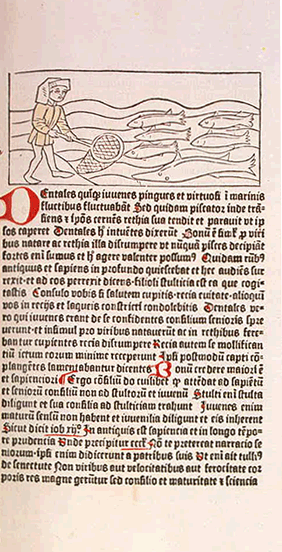 DEntales iuuenes pingues et virtuosi ī marinis
fluctibus fluctuabāt Sed quidam piscator inde trā
siens ⁊ ipōs cernēs rethia sua tendit et parauit vt ip
sos caperet Dentales intuētes dixerūt Bonū ē viri
bus natare ac rethia illa disrumpere vt nūquā pisces decipiāt
fortes eni sumus et agere valenter possumꝰ Quidam
antiquus et sapiens in profundo quiescebat et hec audiēs sur
rexit et ad eos perrexit dicens filioli stulticia est ea que cogi
tastis Consulo vobis salutem cupitis recia euitate alioqui
vos in recijs et laqueis constricti condolebitis Dentales ve
ro qui iuuenes erant de se confidentes consilium senioris spre
uerunt et insimul pro viribus natauerūt ac in rethibus fere
bantur cupientes recia disrumpere Recia autem se mollifican
tiū ictum eorum minime receperunt Ipsi postmodū capti cō
plangētes lamentabantur dicentes Bonū credere maiori ē
et sapienciori Ergo cōsiliū do cuilibet vt attēdat ad sapiētū
et senioris consiliū non ad stultorū et iuuenū Stulti eni stulta
diligunt et sua consilia ad stulticiam trahunt Iuuenes enim
maturū sensū non habent et iuuenilia diligunt et eis inherent
Sicut dicit iob xijꝰ In antiquis est sapiencia et in longo tēpo
re prudencia Vnde precipitur Nō te pretereat narracio se
niorum ipsi enim didicerunt a patribus suis Vt eni ait
de senectute Non viribus aut velocitatibus aut ferocitate cor
poris res magne gerūtur sed consilio et maturitate ⁊ sciencia